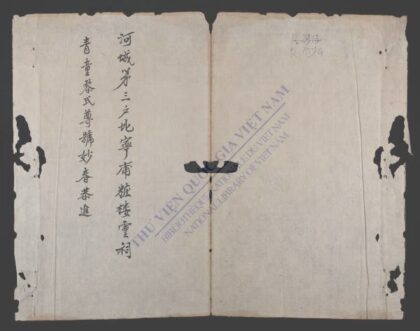 河城第三户北寧庯粧楼灵祠
青童黎氏尊號妙音恭進
THƯ VIỆN QUỐC GIA VIỆT NAM
BIBLIOTHÈQUE NATIONALE DU VIETNAM
NATIONAL LIBRARY OF VIETNAM